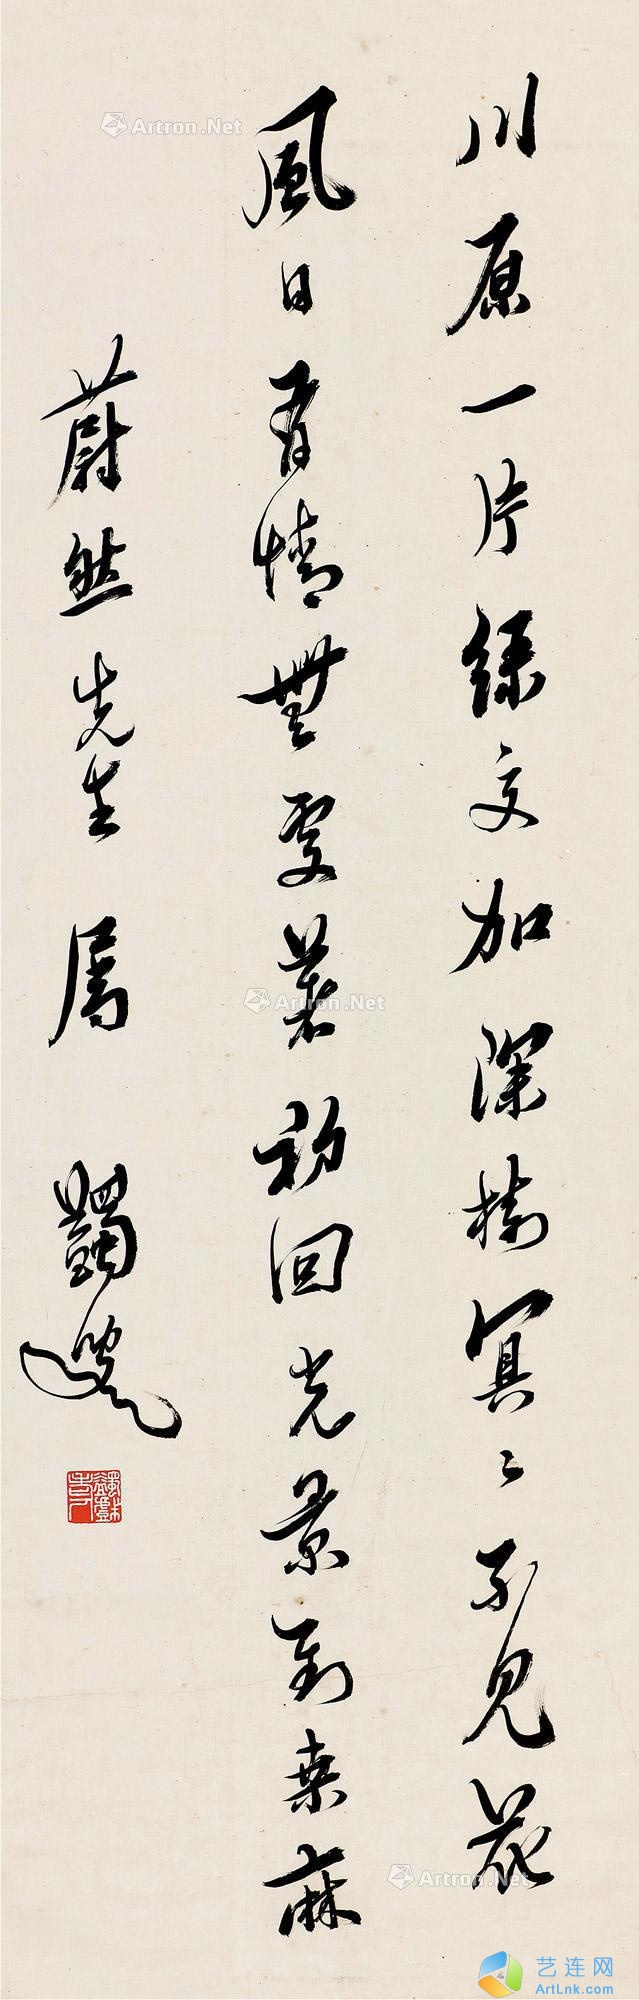 川原一片绿交加深樹冥〻不見花
風日有情無處著初回光景到桑麻
蔚然先生屬 蠲叟
Artron.Net
Artron.Net
Artron.Net
艺连网
ArtLnk.com